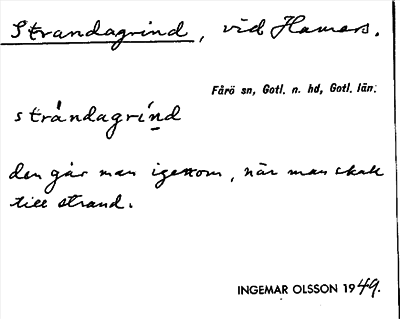 Strandagrind, vid Hamars.
Fårö sn, Gotl. n. hd, Gotl. län.
strándagrínd
den går man igenom, när man skall
till strand.
INGEMAR OLSSON 1949.